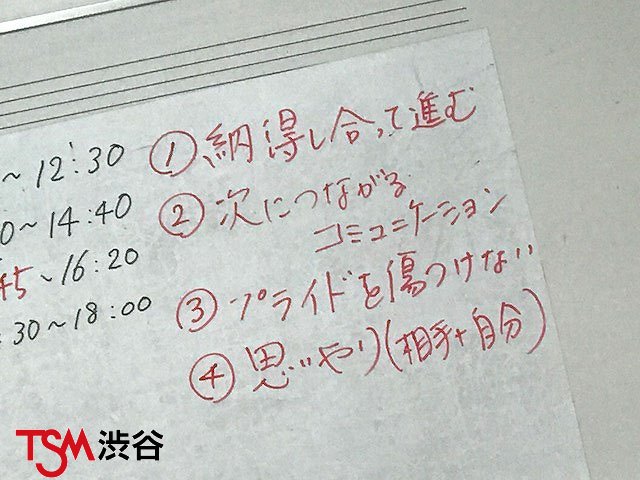 ~12:30
0~14:40
45~16:20
:30~18:00
① 納得し合って進む
② 次につながる
コミュニケーション
③ プライドを傷つけない
④ 思いやり(相手+自分)
TSM渋谷